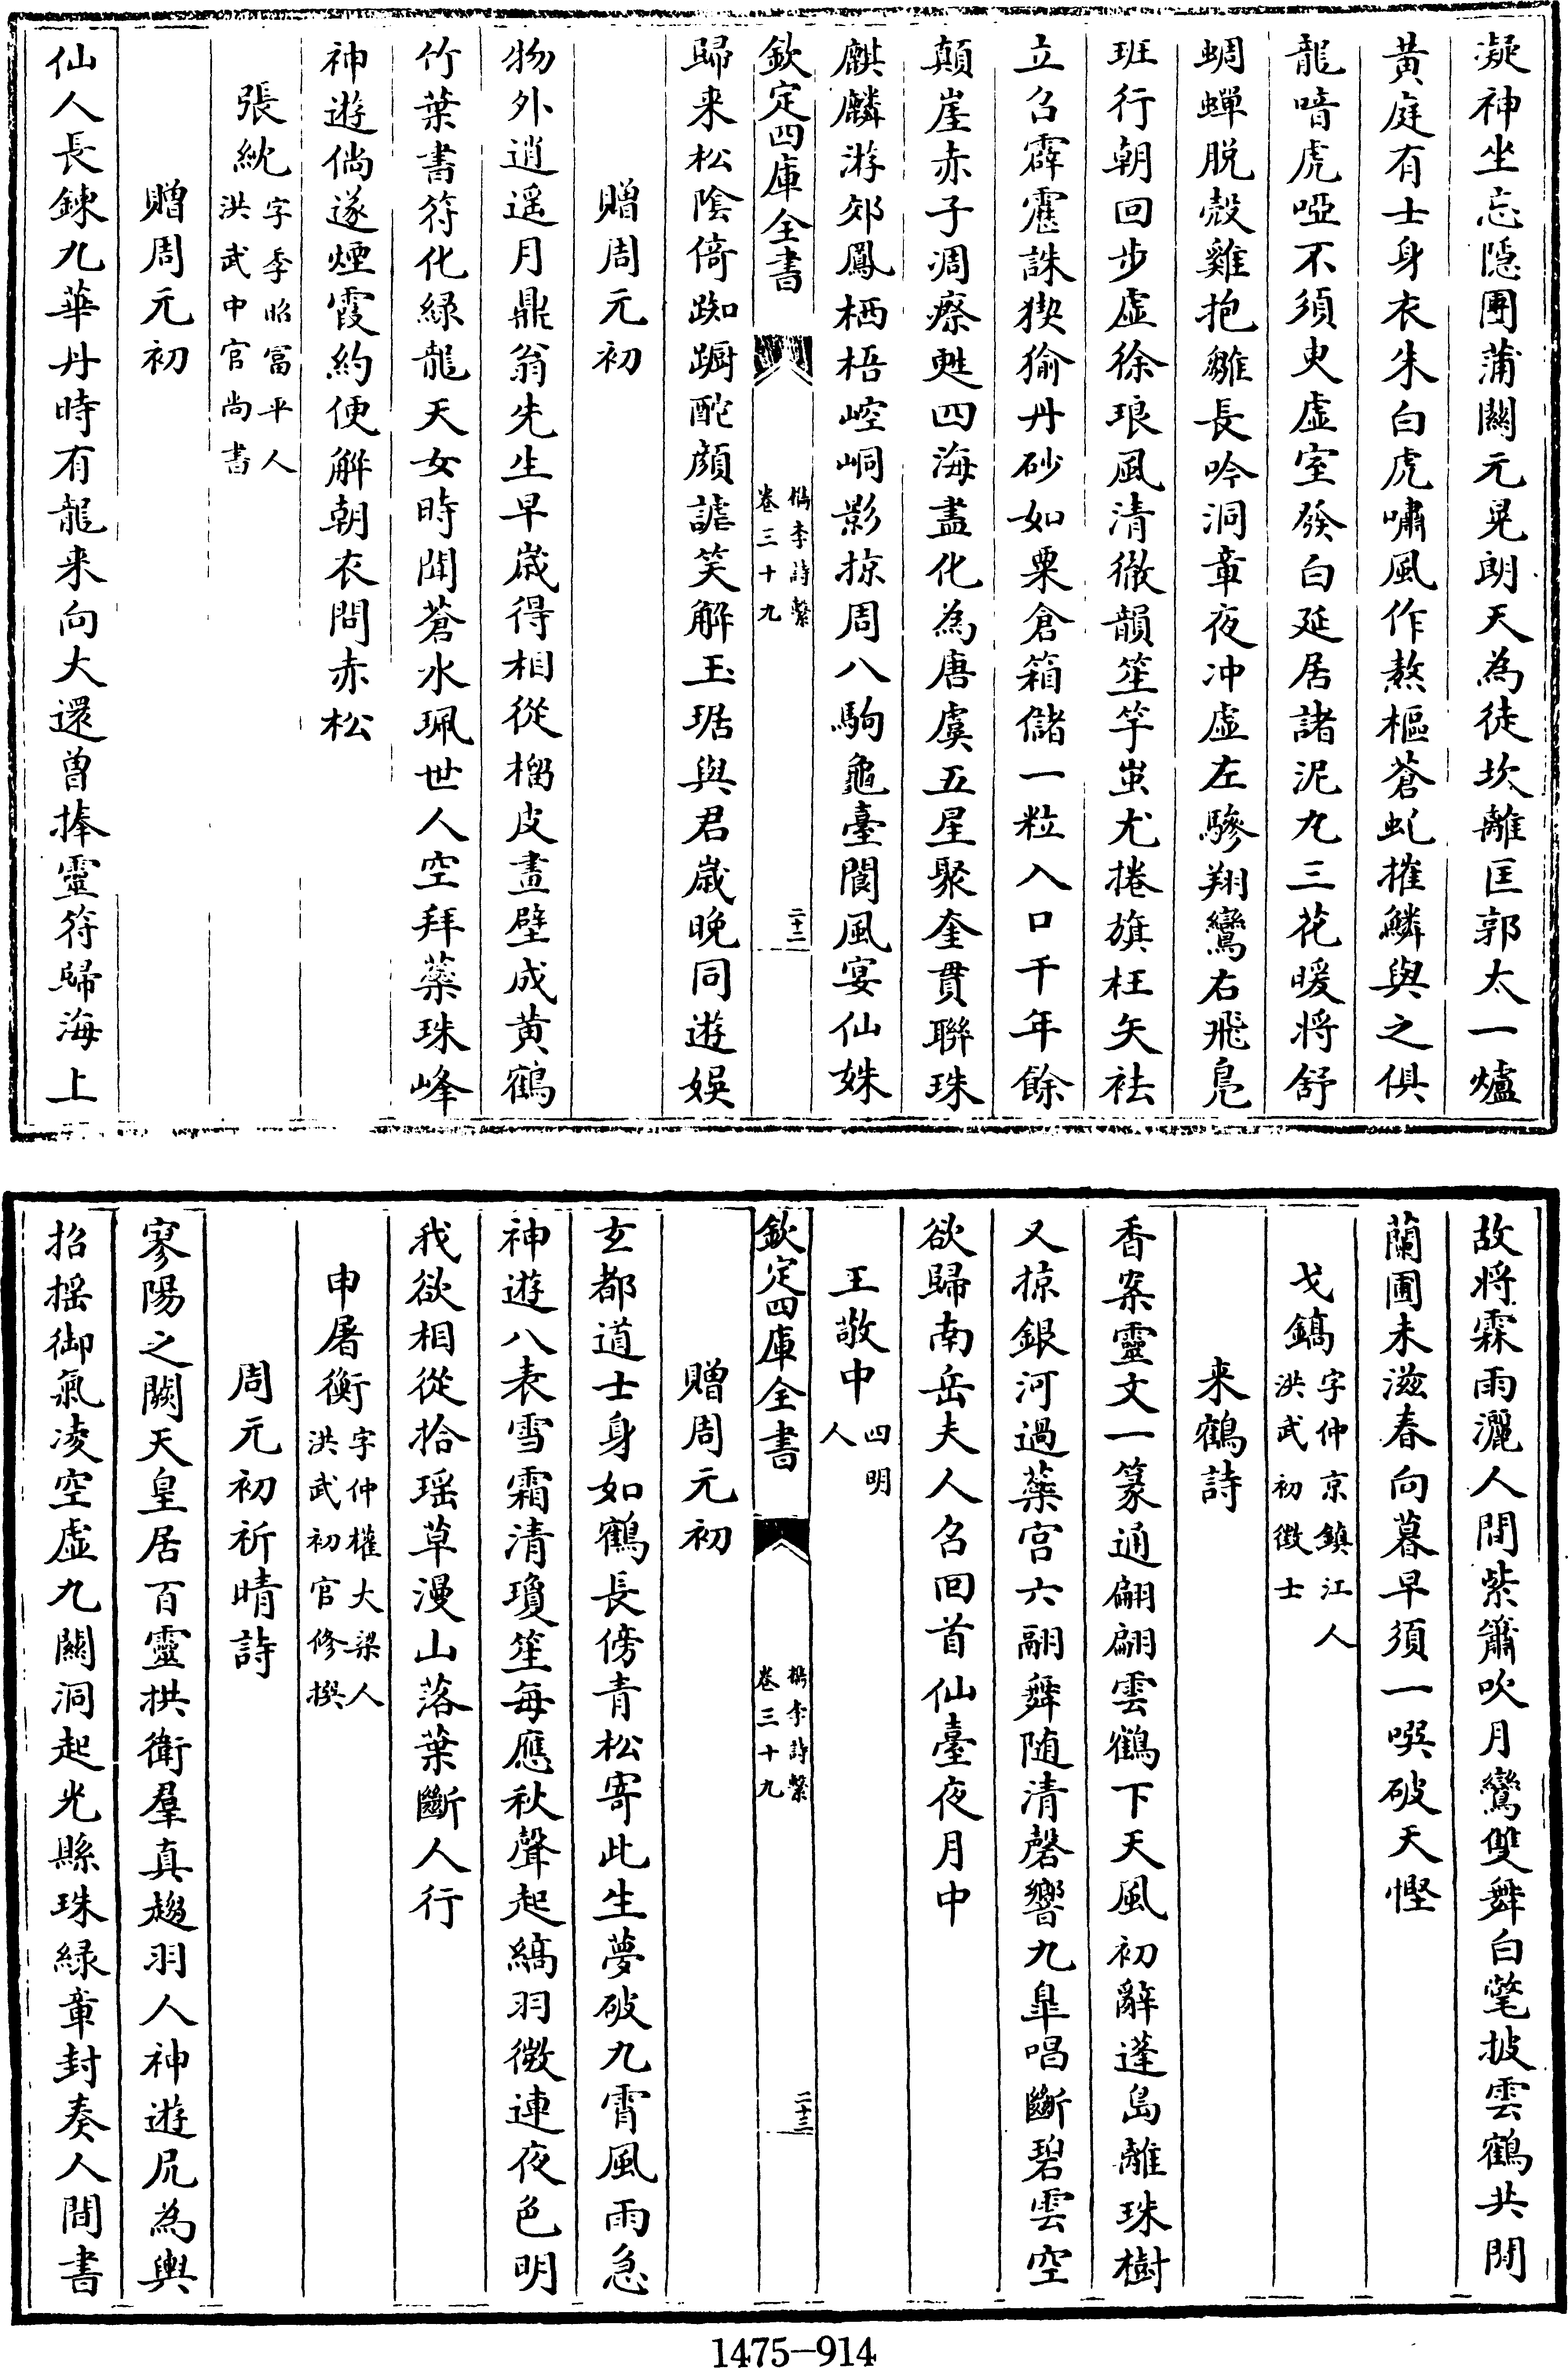 凝神坐忘隱團蒲關元晃朗天為徒坎離匡郭太一爐
黃庭有士身衣朱白虎嘯風作熬樞蒼虬摧鱗與之俱
龍喑虎啞不須臾虛室發白延居諸泥丸三花暖將舒
蜩蟬脱殼雞抱雛長吟洞章夜冲虛左驂翔鸞右飛鳧
班行朝回步虛徐琅風清徹韻笙竽蚩尤捲旗枉矢袪
立召霹靂誅猰㺄丹砂如粟倉箱儲一粒入口千年餘
顛崖赤子凋瘵甦四海盡化為唐虞五星聚奎貫聯珠
麒麟游郊鳳栖梧崆峒影掠周八駒龜臺閬風宴仙姝
欽定四庫全書 檇李詩繫卷三十九 二十二
歸来松陰倚踟躕酡顔謔笑解玉琚與君歲晚同遊娛
贈周元初
物外逍遥月鼎翁先生早歲得相從榴皮畫壁成黄鶴
竹葉書符化緑龍天女時聞蒼水珮世人空拜蘂珠峰
神遊倘遂煙霞約便解朝衣問赤松
張紞字季昭富平人洪武中官尚書
贈周元初
仙人長鍊九華丹時有龍来向大還曽捧靈符歸海上
故將霖雨灑人間紫簫吹月鸞雙舞白氅披雲鶴共閒
蘭圃未滋春向暮早須一噀破天慳
戈鎬字仲京鎮江人洪武初徴士
来鶴詩
香案靈文一篆通翩翩雲鶴下天風初辭蓬島離珠樹
又掠銀河過蘂宫六翮舞随清磬響九臯唱斷碧雲空
欲歸南岳夫人召回首仙臺夜月中
王敬中四明人
欽定四庫全書 檇李詩繫卷三十九 二十三
贈周元初
玄都道士身如鶴長傍青松寄此生夢破九霄風雨急
神遊八表雪霜清瓊笙每應秋聲起縞羽微連夜色明
我欲相從拾瑶草漫山落葉斷人行
申屠衡字仲權大梁人洪武初官修撰
周元初祈晴詩
寥陽之闕天皇居百靈拱衛羣真趨羽人神遊尻為輿
招摇御氣凌空虛九關洞起光縣珠緑章封奏人間書
1475-914